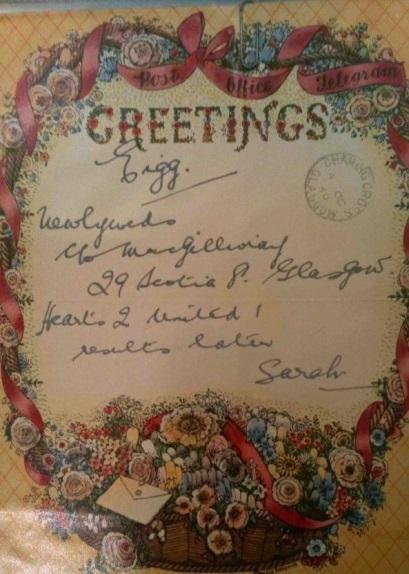 Post Office Telegram
GREETINGS
Eigg.
CHARING CROSS, MARYLAND
4 OC
40
Newlyweds
c/o MacGillivray
29 Scotia P. Glasgow
Hearts 2 United!
results later
Sarah